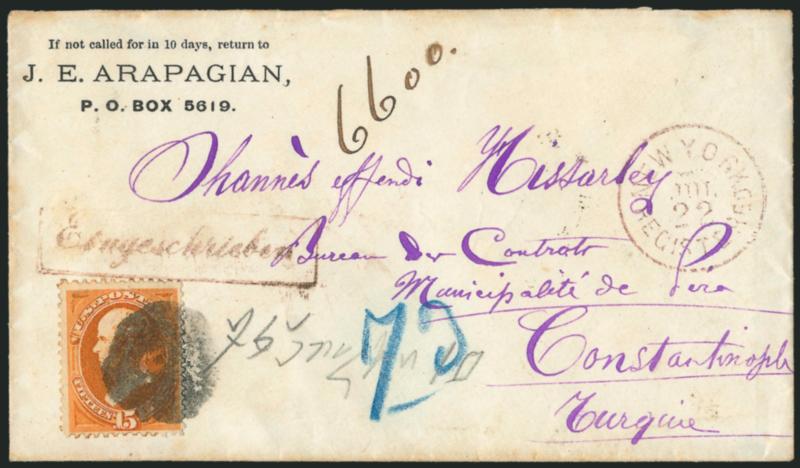 If not called for in 10 days, return to
J. E. ARAPAGIAN,
P. O. BOX 5619.
6600.
Ohannès effendi Hissarley
NEW YORK
JUL
22
REGIST
Eingeschrieben
Bureau des Contrats
Municipalité de Péra
Constantinople
Turquie
U.S. POSTAGE
FIFTEEN 15